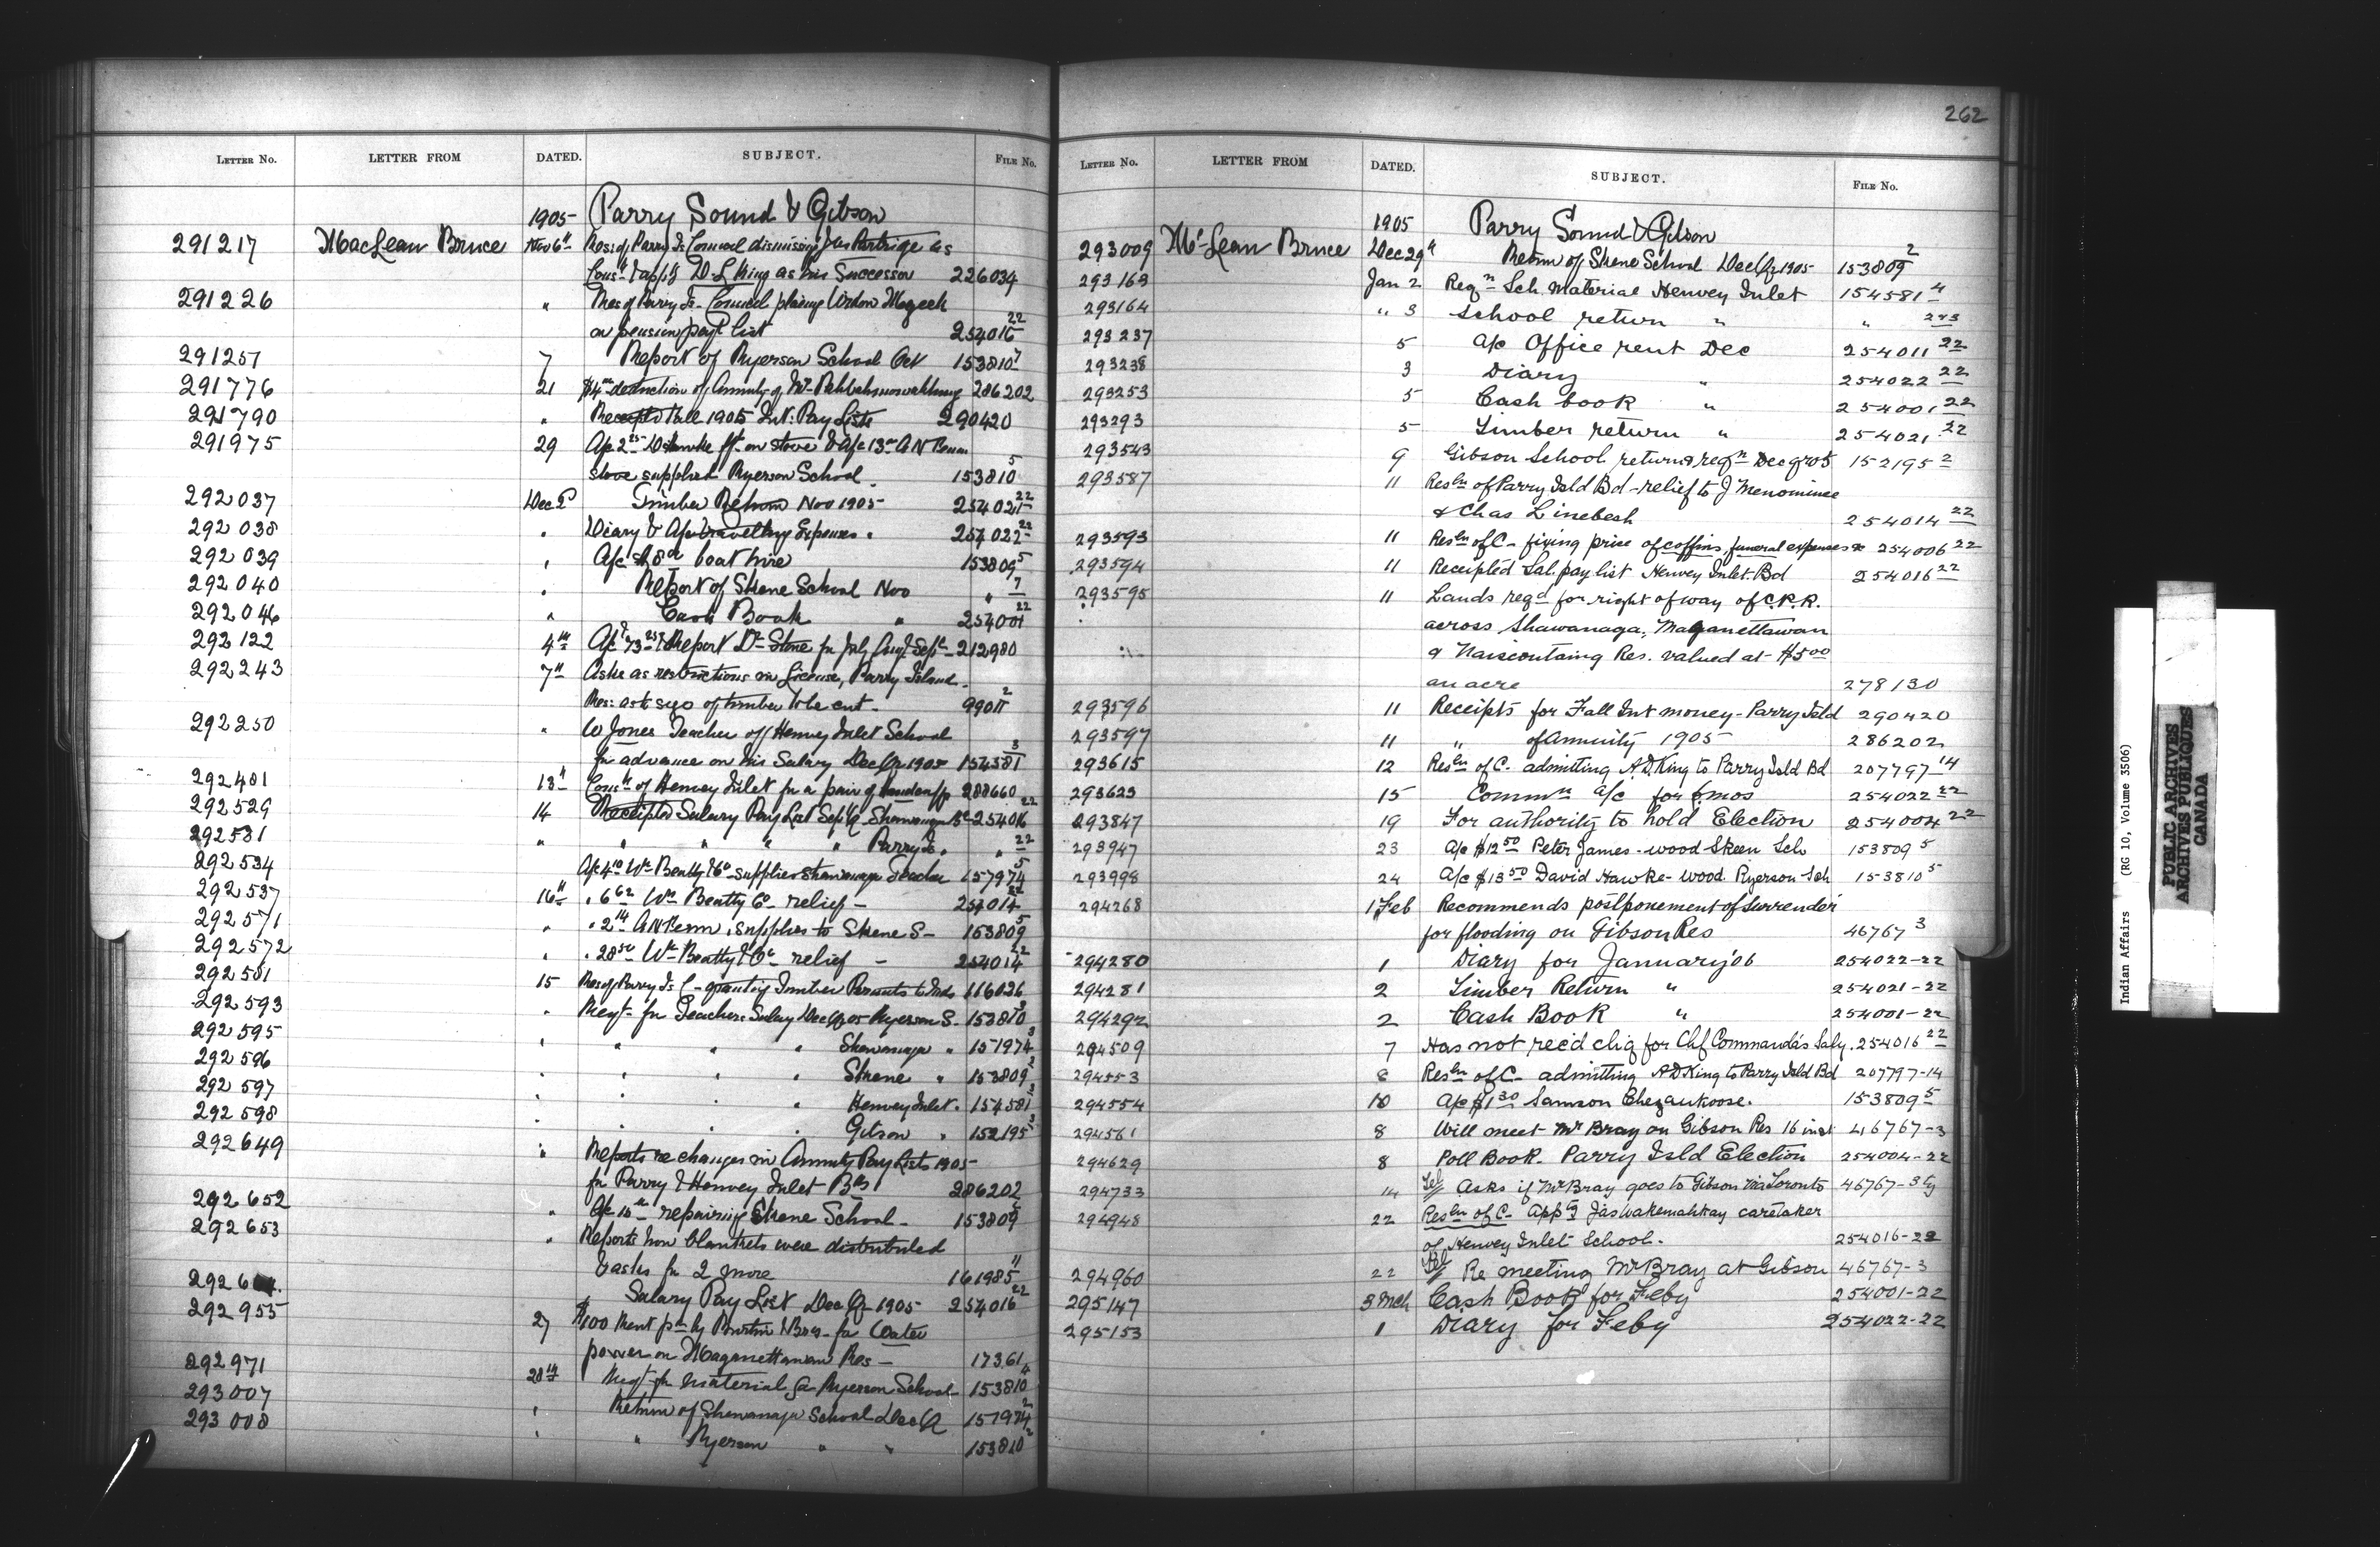 262
LETTER No. LETTER FROM DATED. SUBJECT. FILE No.
1905 Parry Sound & Gibson
291217 MacLean Bruce Nov 6th Res: of Parry Is. Council dismissing Jas Partridge as
Const & appt'g D. L. King as his Successor 226034
291226 " Res of Parry Is. Council placing Widow Megeek
on pension pay list 254016 22
291257 7 Report of Ryerson School Oct 153810 7
291776 21 286202
291790 " Receipted Fall 1905 Int: Pay Lists 290420
291975 29
stove supplied Ryerson School. 153810 5
292037 Dec 2 Timber Return Nov 1905 254021 22
292038 " Diary & A/c travelling Expenses " 254022 22
292039 " A/c boat hire 153809 5
292040 " Report of Skene School Nov " 7
292046 " Cash Book " 254001 22
292122 4th A/c & Report Dr Stone for July Aug & Sept 212980
292243 7th Asks as restrictions in License, Parry Island.
Res: as to size of timber to be cut. 9901 2
292250 " W Jones Teacher of Henvey Inlet School
for advance on his Salary Dec Qr 1905 154581 3
292481 13th Const of Henvey Inlet for a pair of handcuffs 288660
292529 14 Receipted Salary Pay List Sep Q Shawanaga Bd 254016 22
292531 " " " " " Parry Is. " 22
292534 A/c Wm Beatty & Co supplies Shawanaga Teacher 157974 5
292537 16th " 6 62 Wm Beatty Co relief - 254014 22
292571 " " 2 14 supplies to Skene S - 153809 5
292572 " " 28 50 Wm Beatty & Co relief - 254014 22
292581 15 Res of Parry Is C - granting Timber Permits to Inds 116036
292593 " Reqt for Teachers Salary Dec Q 05 Ryerson S. 153810 3
292595 " " " " Shawanaga " 151974 3
292596 " " " " Skene " 153809 2
292597 " " " " Henvey Inlet " 154581 3
292598 " " " " Gibson " 152195 3
292649 " Reports re changes in Annuity Pay Lists 1905
for Parry & Henvey Inlet Bds 286202
292652 " A/c repairing Skene School - 153809
292653 " Reports how blankets were distributed
& asks for 2 more 161985 11
Salary Pay List Dec Q 1905 254016 22
292955 27 $100 Rent for Water
power on Maganettawan Res - 17361
292971 28th Reqt for material for Ryerson School 153810 4
293007 " Return of Shawanaga School Dec Q 157974 2
293008 " " Ryerson " " 153810 2
LETTER No. LETTER FROM DATED. SUBJECT. FILE No.
1905 Parry Sound & Gibson
293009 McLean Bruce Dec 29th Return of Skene School Dec Qr 1905 153809 2
293163 Jan 2 Reqn Sch. Material Henvey Inlet 154581 4
293164 " 3 School return " " 2&3
293237 5 a/c Office rent Dec 254011 22
293238 3 Diary " 254022 22
293253 5 Cash book " 254001 22
293293 5 Timber return " 254021 22
293543 9 Gibson School return & reqn Dec qr 05 152195 2
293587 11 Resln of Parry Isld Bd - relief to J Menominee
& Chas Linebesh 254014 22
293593 11 Resln of C - fixing price of coffins, funeral expenses &c 254006 22
293594 11 Receipted Sal. pay list Henvey Inlet Bd 254016 22
293595 11 Lands reqd for right of way of C.P.R.
across Shawanaga, Maganettawan
& Naiscoutaing Res. valued at $5 00
an acre 278130
293596 11 Receipts for Fall Int money - Parry Isld 290420
293597 11 " of Annuity 1905 286202
293615 12 Resln of C. admitting A.D. King to Parry Isld Bd 207797 14
293623 15 Commn a/c for 6 mos 254022 22
293847 19 For authority to hold Election 254004 22
293947 23 a/c $12 50 Peter James - wood Skeen Sch 153809 5
293998 24 a/c $13 50 David Hawke - wood Ryerson Sch 153810 5
294268 1 Feb Recommends postponement of Surrender
for flooding on Gibson Res 46767 3
294280 1 Diary for January '06 254022-22
294281 2 Timber Return " 254021-22
294292 2 Cash Book " 254001-22
294509 7 Has not rec'd chq for Chf Commanda's Saly. 254016 22
294553 6 Resln of C - admitting A D King to Parry Isld Bd 207797-14
294554 10 A/c $1 30 Samson Chezaukoose. 153809 5
294561 8 Will meet Mr Bray on Gibson Res 16 inst 46767-3
294629 8 Poll Book. Parry Isld Election 254004-22
294733 14 Tel Asks if Mr Bray goes to Gibson via Toronto 46767-3
294948 22 Resln of C - Appt'g Jas Wakemahkay caretaker
of Henvey Inlet School. 254016-22
294960 22 Tel Re meeting Mr Bray at Gibson 46767-3
295147 3 Mch Cash Book for Feby 254001-22
295153 1 Diary for Feby 254022-22
Indian Affairs (RG 10, Volume 3506)
PUBLIC ARCHIVES
ARCHIVES PUBLIQUES
CANADA